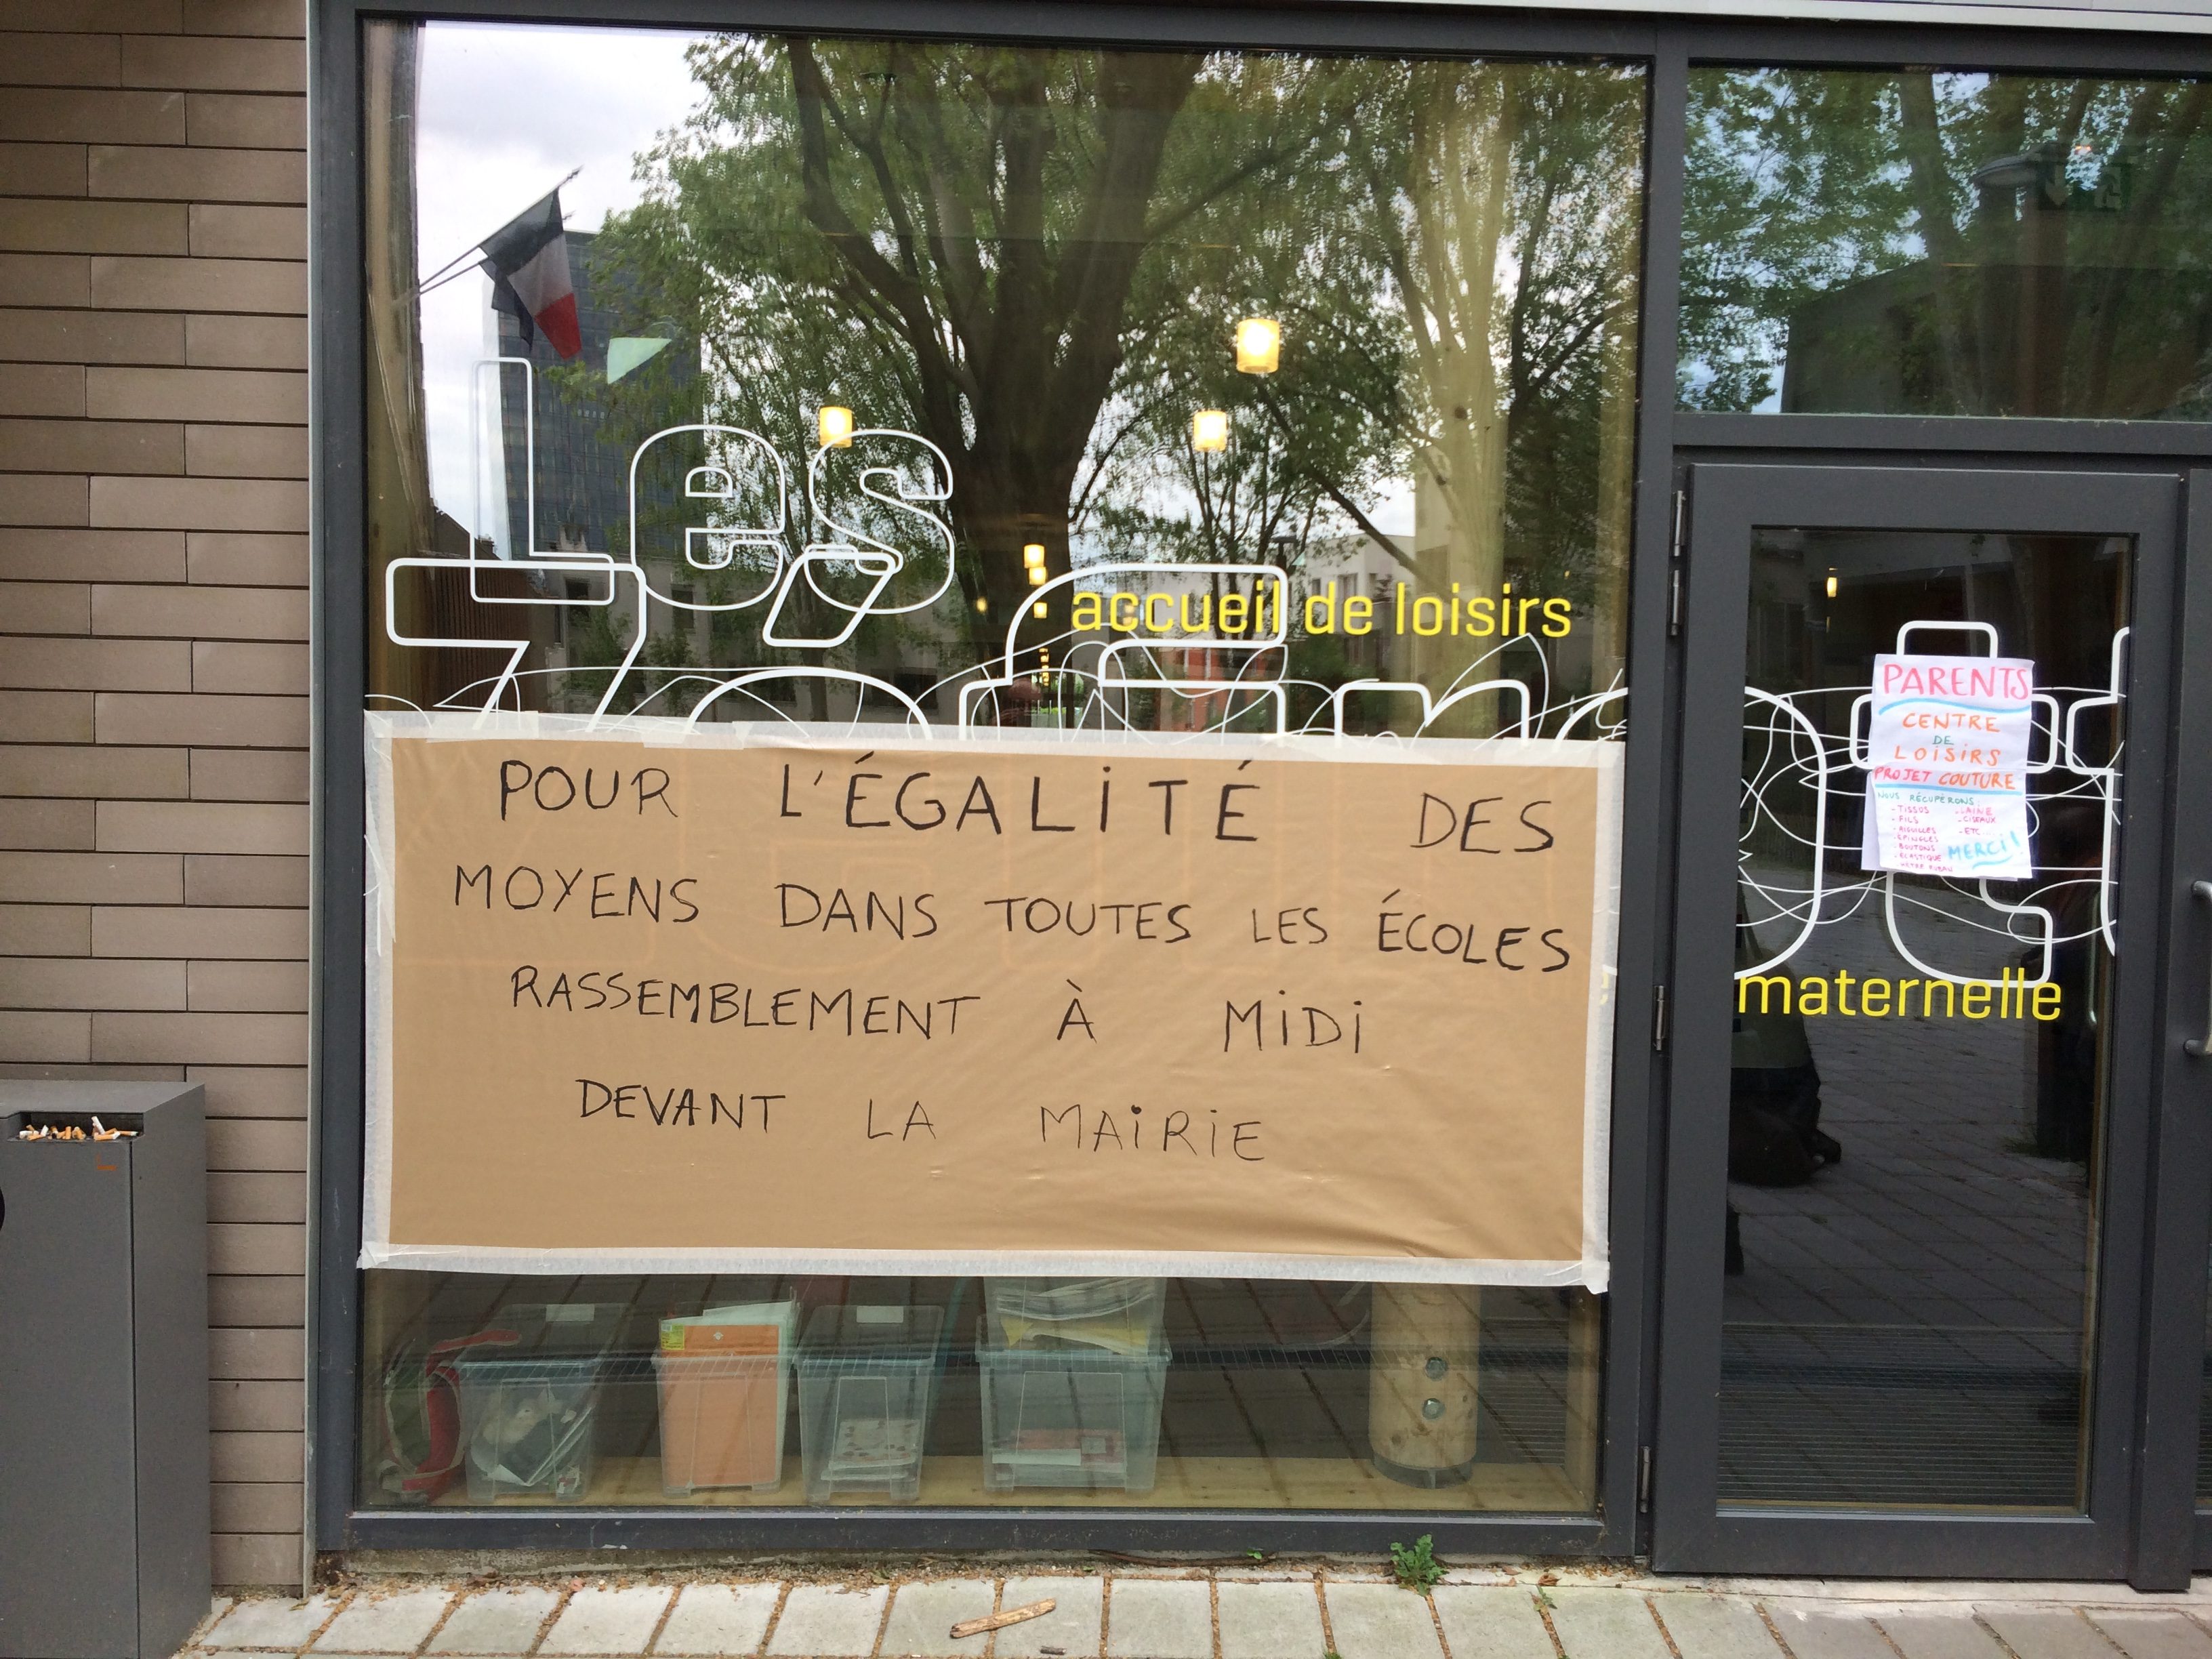 Les
accueil de loisirs
POUR L'ÉGALITÉ DES
MOYENS DANS TOUTES LES ÉCOLES
RASSEMBLEMENT À MIDI
DEVANT LA MAIRIE
PARENTS
CENTRE
DE
LOISIRS
PROJET COUTURE
NOUS RÉCUPÉRONS:
- TISSUS
- FILS
- AIGUILLES
- ÉPINGLES
- BOUTONS
- ELASTIQUE
- LAINE
- CISEAUX
- ETC...
MERCI!
maternelle